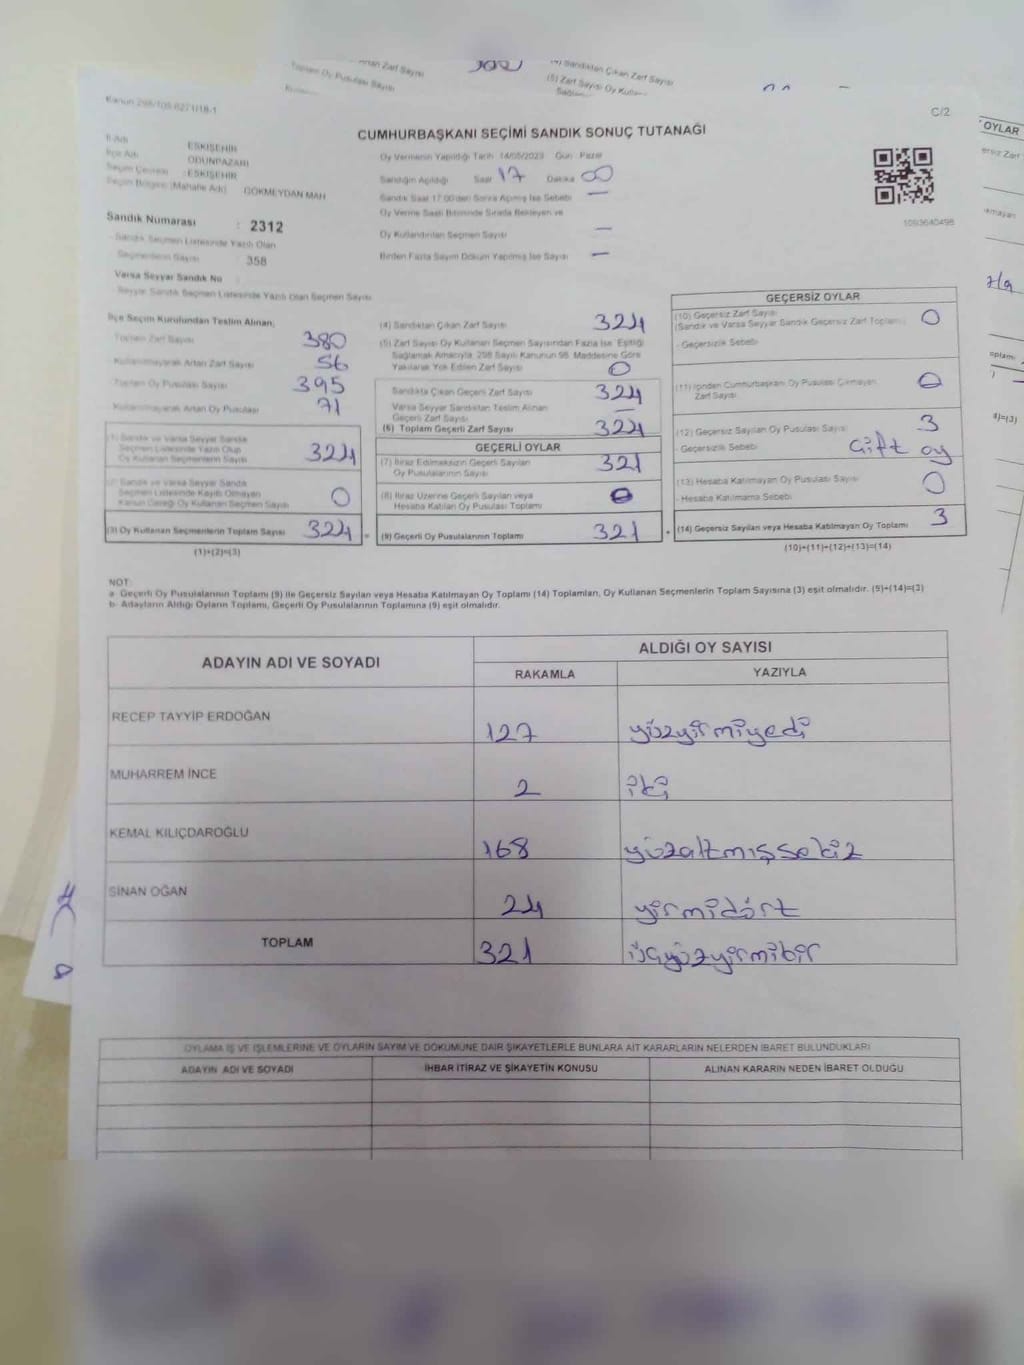 Artan Zarf Sayısı
Toplam Oy Pusulası Sayısı
Sandıktan Çıkan Zarf Sayısı
(5) Zarf Sayısı Oy
Kanun 298/105-6271/18-1
C/2
OYLAR
CUMHURBAŞKANI SEÇİMİ SANDIK SONUÇ TUTANAĞI
İl Adı ESKİŞEHİR
İlçe Adı ODUNPAZARI
Seçim Çevresi : ESKİŞEHİR
Seçim Bölgesi (Mahalle Adı) GÖKMEYDAN MAH
Oy Vermenin Yapıldığı Tarih 14/05/2023 Gün Pazar
Sandığın Açıldığı Saat 17 Dakika 00
Sandık Saat 17:00'den Sonra Açılmış İse Sebebi —
Oy Verme Saati Bitiminde Sırada Bekleyen ve
Oy Kullandırılan Seçmen Sayısı —
Birden Fazla Sayım Döküm Yapılmış İse Sayısı —
1093640498
Sandık Numarası : 2312
Sandık Seçmen Listesinde Yazılı Olan
Seçmenlerin Sayısı 358
Varsa Seyyar Sandık No
Seyyar Sandık Seçmen Listesinde Yazılı Olan Seçmen Sayısı
İlçe Seçim Kurulundan Teslim Alınan;
Toplam Zarf Sayısı 380
Kullanılmayarak Artan Zarf Sayısı 56
Toplam Oy Pusulası Sayısı 395
Kullanılmayarak Artan Oy Pusulası 71
(1) Sandık ve Varsa Seyyar Sandık
Seçmen Listesinde Yazılı Olup
Oy Kullanan Seçmenlerin Sayısı 324
(2) Sandık ve Varsa Seyyar Sandık
Seçmen Listesinde Kayıtlı Olmayan
Kanun Gereği Oy Kullanan Seçmen Sayısı 0
(3) Oy Kullanan Seçmenlerin Toplam Sayısı 324
(1)+(2)=(3)
(4) Sandıktan Çıkan Zarf Sayısı 324
(5) Zarf Sayısı Oy Kullanan Seçmen Sayısından Fazla İse, Eşitliği
Sağlamak Amacıyla, 298 Sayılı Kanunun 98. Maddesine Göre
Yakılarak Yok Edilen Zarf Sayısı 0
Sandıkta Çıkan Geçerli Zarf Sayısı 324
Varsa Seyyar Sandıktan Teslim Alınan
Geçerli Zarf Sayısı —
(6) Toplam Geçerli Zarf Sayısı 324
GEÇERLİ OYLAR
(7) İtiraz Edilmeksizin Geçerli Sayılan
Oy Pusulalarının Sayısı 321
(8) İtiraz Üzerine Geçerli Sayılan veya
Hesaba Katılan Oy Pusulası Toplamı 0
= (9) Geçerli Oy Pusulalarının Toplamı 321
GEÇERSİZ OYLAR
(10) Geçersiz Zarf Sayısı 0
(Sandık ve Varsa Seyyar Sandık Geçersiz Zarf Toplamı)
- Geçersizlik Sebebi
(11) İçinden Cumhurbaşkanı Oy Pusulası Çıkmayan
Zarf Sayısı 0
(12) Geçersiz Sayılan Oy Pusulası Sayısı 3
- Geçersizlik Sebebi Çift oy
(13) Hesaba Katılmayan Oy Pusulası Sayısı 0
- Hesaba Katılmama Sebebi
+ (14) Geçersiz Sayılan veya Hesaba Katılmayan Oy Toplamı 3
(10)+(11)+(12)+(13)=(14)
NOT:
a- Geçerli Oy Pusulalarının Toplamı (9) ile Geçersiz Sayılan veya Hesaba Katılmayan Oy Toplamı (14) Toplamları, Oy Kullanan Seçmenlerin Toplam Sayısına (3) eşit olmalıdır. (9)+(14)=(3)
b- Adayların Aldığı Oyların Toplamı, Geçerli Oy Pusulalarının Toplamına (9) eşit olmalıdır.
ADAYIN ADI VE SOYADI
ALDIĞI OY SAYISI
RAKAMLA YAZIYLA
RECEP TAYYİP ERDOĞAN 127 yüzyirmiyedi
MUHARREM İNCE 2 iki
KEMAL KILIÇDAROĞLU 168 yüzaltmışsekiz
SİNAN OĞAN 24 yirmidört
TOPLAM 321 üçyüzyirmibir
OYLAMA İŞ VE İŞLEMLERİNE VE OYLARIN SAYIM VE DÖKÜMÜNE DAİR ŞİKAYETLERLE BUNLARA AİT KARARLARIN NELERDEN İBARET BULUNDUKLARI
ADAYIN ADI VE SOYADI İHBAR İTİRAZ VE ŞİKAYETİN KONUSU ALINAN KARARIN NEDEN İBARET OLDUĞU